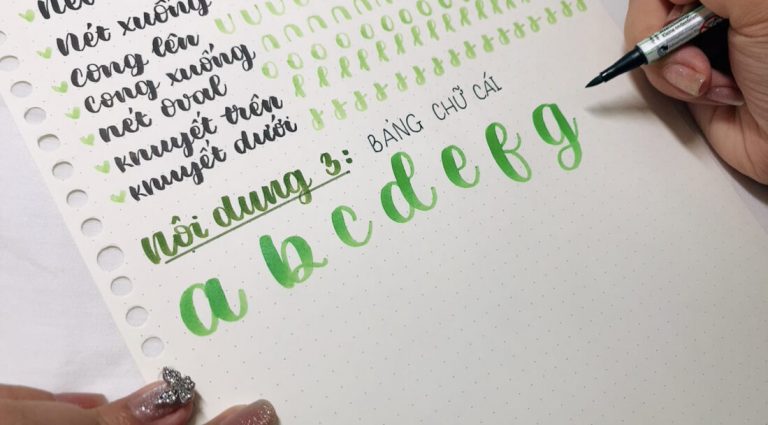 nét xuống
cong lên
cong xuống
nét oval
khuyết trên
khuyết dưới
nội dung 3: BẢNG CHỮ CÁI
a b c d e f g